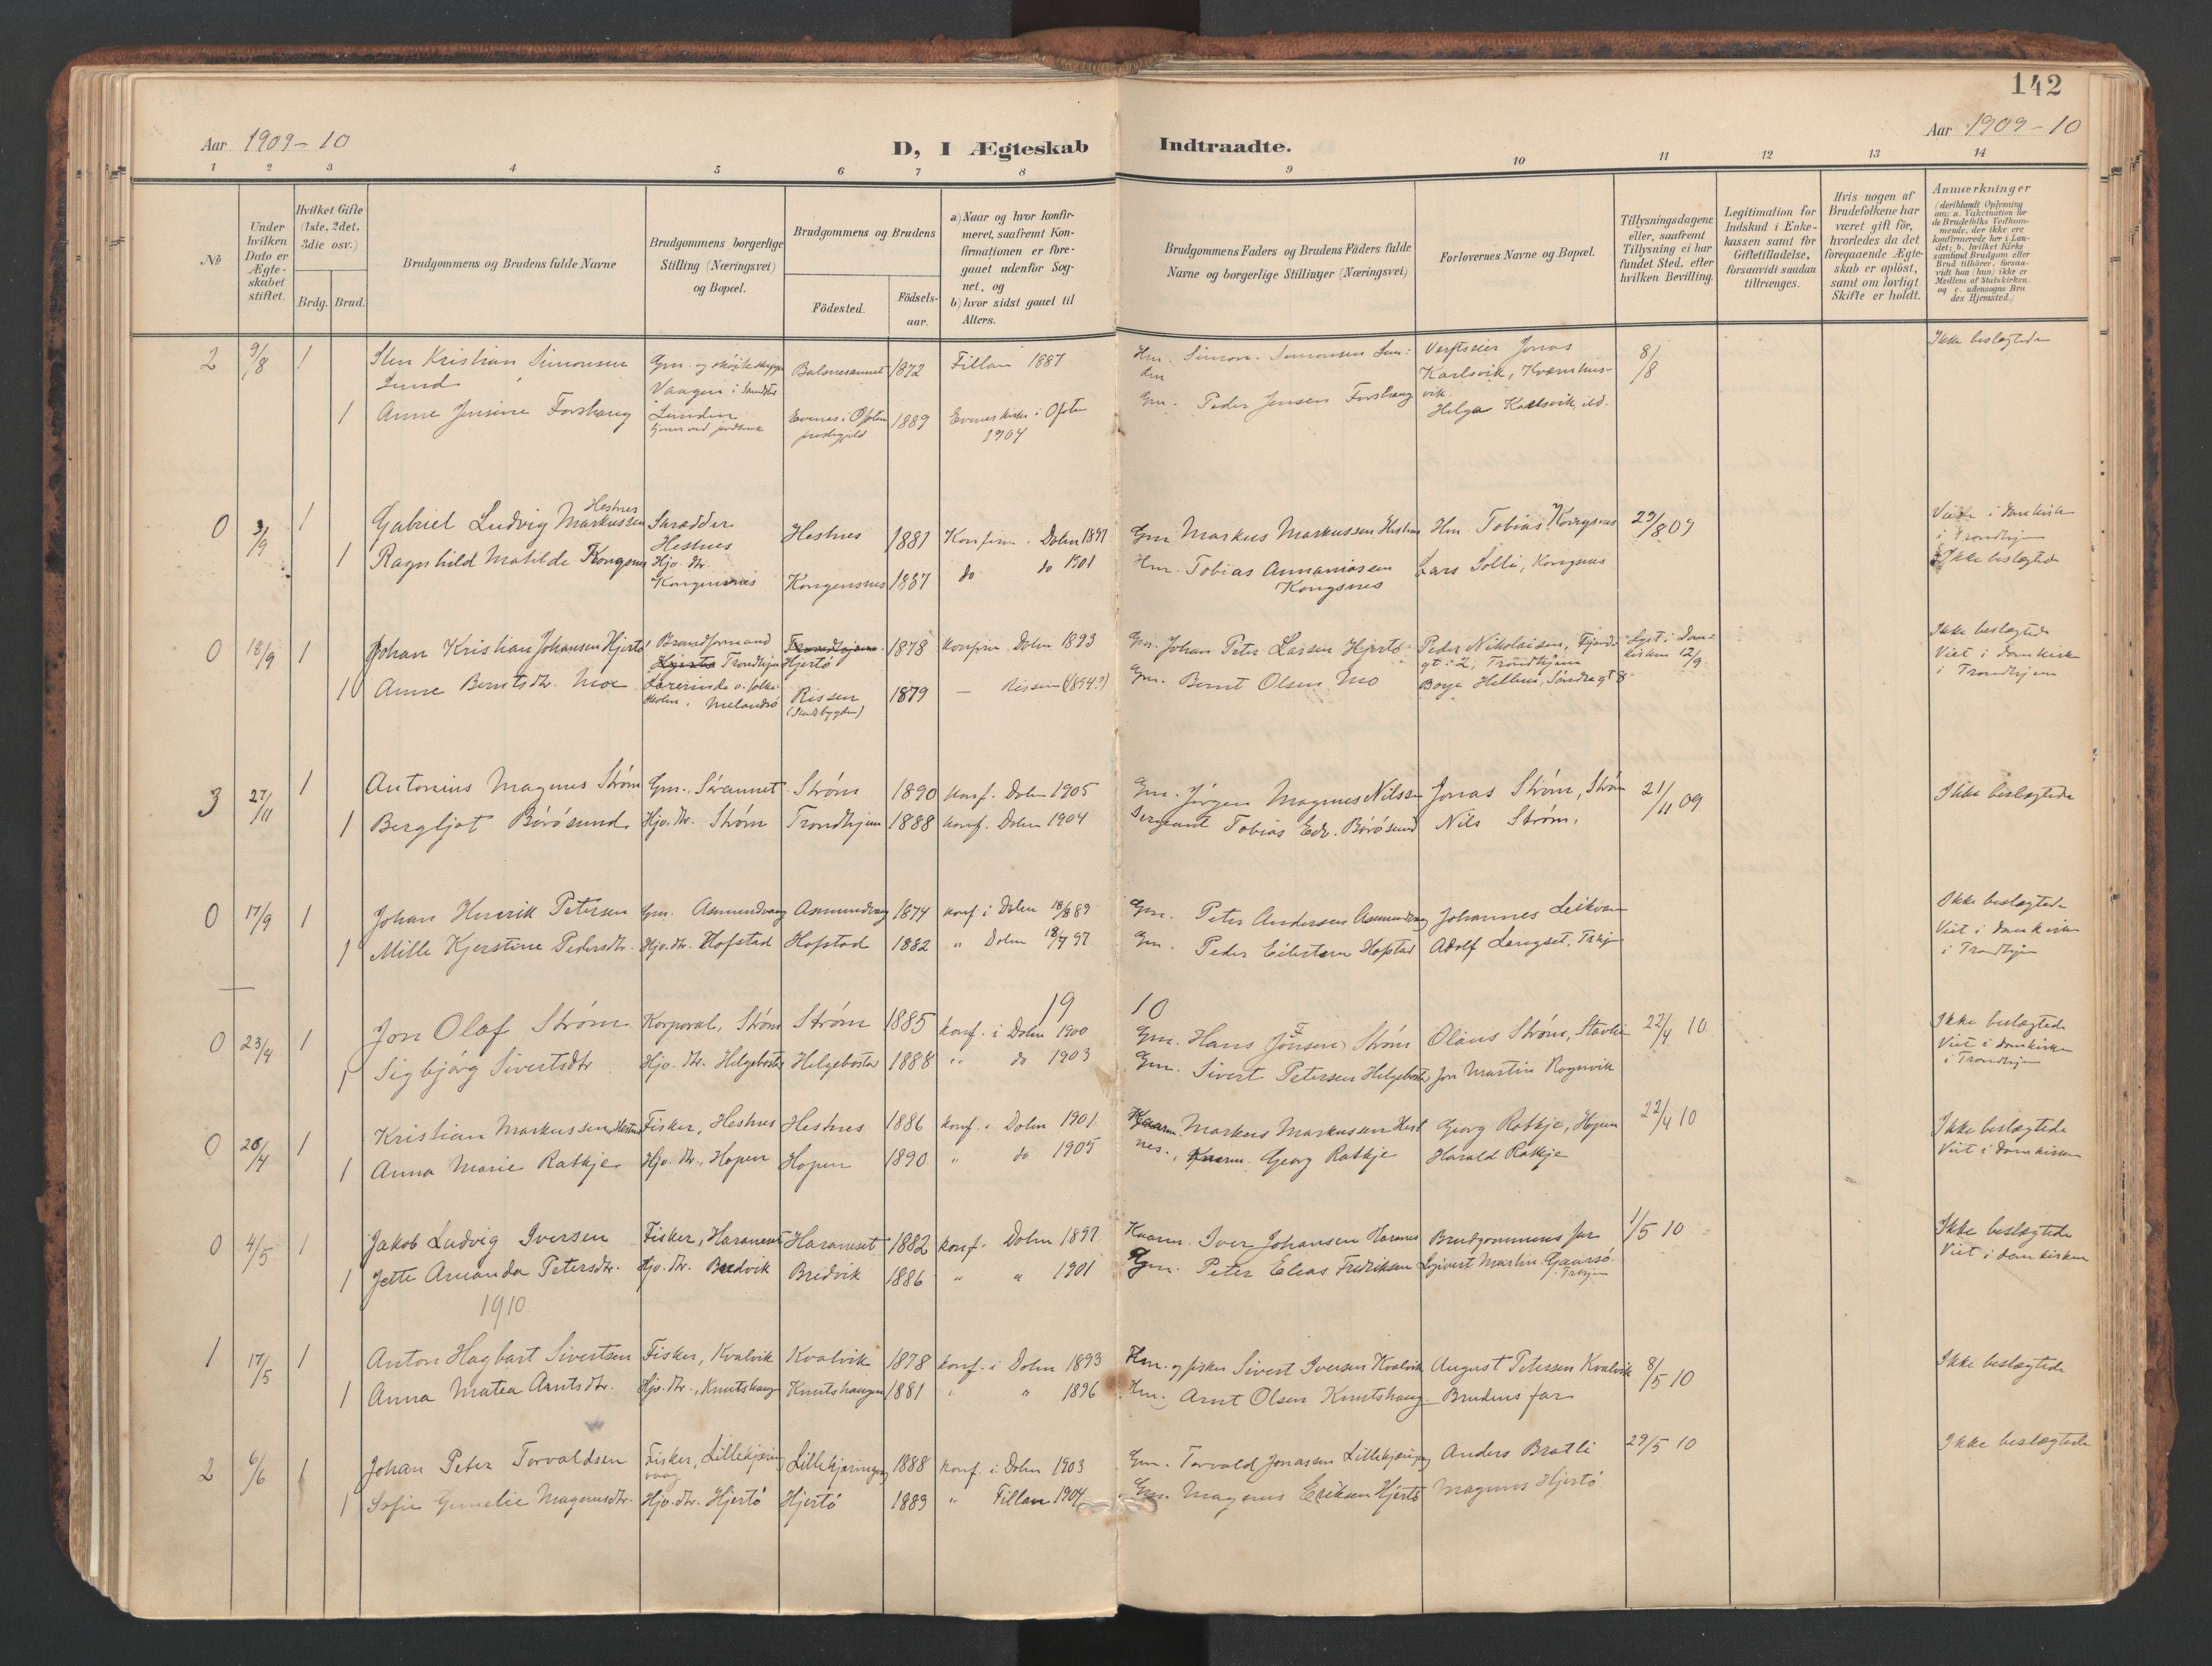 142
Aar 1909-10
D, I Ægteskab Indtraadte.
Aar 1909-10
1 2 3 4 5 6 7 8 9 10 11 12 13 14
No
Under hvilken Dato er Ægte- skabet stiftet.
Hvilket Gifte (1ste, 2det, 3die osv.)
Brdg. Brud.
Brudgommens og Brudens fulde Navne
Brudgommens borgerlige Stilling (Næringsvei) og Bopæl.
Brudgommens og Brudens
Födested.
Födsels- aar.
a) Naar og hvor konfir- meret, saafremt Kon- firmationen er fore- gaaet udenfor Sog- net, og
b) hvor sidst gaaet til Alters.
Brudgommens Faders og Brudens Faders fulde Navne og borgerlige Stillinger (Næringsvei)
Forlovernes Navne og Bopæl.
Tillysningsdagene eller, saafremt Tillysning ei har fundet Sted, efter hvilken Bevilling.
Legitimation for Indskud i Enke- kassen samt for Giftetilladelse, forsaavidt saadan tiltrænges.
Hvis nogen af Brudefolkene har været gift för, hvorledes da det foregaaende Ægte- skab er oplöst, samt om lovligt Skifte er holdt.
Anmærkninger (deriblandt Oplysning om: a. Vakcination for de Brudefolks Vedkom- mende, der ikke ere konfirmerede her i Lan- det; b. hvilket Kirke- samfund Brudgom eller Brud tilhörer, forsaa- vidt han (hun) ikke er Medlem af Statskirken, og c. udensogns Bru- des Hjemsted.)
2 9/8 1 Kristian Simonsen Gm. og 1872 Fillan 1887 Hm. Simon Simonsen Verftseier Jonas 8/8 Ikke beslægtede
Lund Vaagen i Karlsvik, Kværnhus-
1 Anne Jensine Forshaug Evenes i Ofoten 1889 Evenes kirke i Ofoten Gm. Peder Jensen Forshaug vik.
1904 Helga Karlsvik, ibd.
Hestnes
0 3/9 1 Gabriel Ludvig Markussen Hestnes 1881 Konfirm. Dolm 1897 Gm. Markus Markussen Hestnes Hm. Tobias Kongsnes 29/8 09 Viede i domkirken
Hestnes i Trondhjem
1 Ragnhild Matilde Kongsnes Hjv. dtr. Kongensnes Kongensnes 1887 do do 1901 Hm. Tobias Annaniassen Kongsnes Lars Solli, Kongsnes Ikke beslægtede
0 18/9 1 Johan Kristian Johansen Hjertö Brandformand Hjertö Trondhjem Trondhjem Hjertö 1878 Konfirm. Dolm 1893 Gm. Johan Peter Larsen Hjertö Peder Nikolaisen, gt. 2, Trondhjem Lyst i Dom- kirken 12/9 Ikke beslægtede
Viet i domkirken
i Trondhjem
1 Anne Berntsdtr. Moe Lærerinde v. folke- skolen, Melandsö Rissen (Stadsbygden) 1879 — Rissen (1894?) Gm. Bernt Olsen Mo Hellhus, Söndregt 8
3 27/11 1 Antonius Magnus Ström Gm. Ström 1890 Konf. Dolm 1905 Gm. Jörgen Magnus Nilssen Jonas Ström, Ström 21/11 09 Ikke beslægtede
1 Bergljot Börösund Hjv. dtr. Ström Trondhjem 1888 Konf. Dolm 1904 Sergeant Tobias Edv. Börösund Nils Ström,
0 17/9 1 Johan Henrik Petersen Gm. Asmundvaag Asmundvaag 1874 Konf. i Dolm 18/8 89 Gm. Peter Andersen Asmundvaag Johannes Leikvam Ikke beslægtede
Viet i domkirken
i Trondhjem
1 Mille Kjerstine Pedersdtr. Hjv. dtr. Hofstad Hofstad 1882 " Dolm 18/7 97 Gm. Peder Eilertsen Hofstad Adolf Langset, Trhjem
1910
0 23/4 1 Jon Olaf Ström Korporal, Ström Ström 1885 Konf. i Dolm 1900 Gm. Hans Jönsen Ström Olaus Ström, 22/4 10 Ikke beslægtede
Viet i domkirken
i Trondhjem
1 Sigbjörg Sivertsdtr Hjv. dtr. Helgebostad Helgebostad 1888 " do 1903 Gm. Sivert Petersen Helgebostad Jon Martin Rognvik
0 26/4 1 Kristian Markussen Hestnes Fisker, Hestnes Hestnes 1886 Konf. i Dolm 1901 Kaarm. Markus Markussen Hest- Georg Ratkje, Hopen 22/4 10 Ikke beslægtede
Viet i domkirken
1 Anna Marie Ratkje Hjv. dtr., Hopen Hopen 1890 " do 1905 nes., Kaarm. Georg Ratkje Harald Ratkje
0 4/5 1 Jakob Ludvig Iversen Fisker, Haraneset Haraneset 1882 Konf. Dolm 1897 Kaarm. Iver Johansen Haranes Brudgommens far 1/5 10 Ikke beslægtede
Viet i domkirken
1 Jette Amanda Petersdtr. Hjv. dtr. Bredvik Bredvik 1886 " " 1901 Gm. Peter Elias Fredriksen Sivert Martin Gaarsö. Trhjem
1910
1 17/5 1 Anton Hagbart Sivertsen Fisker, Kvalvik Kvalvik 1878 Konf. i Dolm 1893 Hm. og fisker Sivert Iversen Kvalvik August Petersen Kvalvik 8/5 10 Ikke beslægtede
1 Anna Matea Arntsdtr. Hjv. dtr., Knutshaug Knutshaugen 1881 " " 1896 Hm. Arnt Olsen Knutshaug Brudens far
2 6/6 1 Johan Peter Torvaldsen Fisker, Lillekjæring- vaag Lillekjæringvaag 1888 Konf. i Dolm 1903 Gm. Torvald Jonassen Lillekjæringvaag Anders Bratli 29/5 10 Ikke beslægtede
1 Sofie Gunelie Magnusdtr. Hjv. dtr. Hjertö Hjertö 1889 " Fillan 1904 Gm. Magnus Eriksen Hjertö Magnus Hjertö